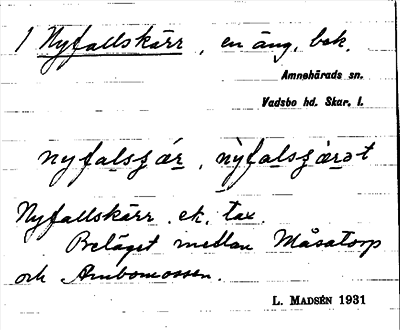 1 Nyfallskärr, en äng, bek.
Amnehärads sn.
Vadsbo hd. Skar. l.
nyfalsʒǽr, nỳfalsʒærət
Nyfallskärr. ek. tax.
Beläget mellan Måsatorp
och Armbomossen.
L. MADSÉN 1931